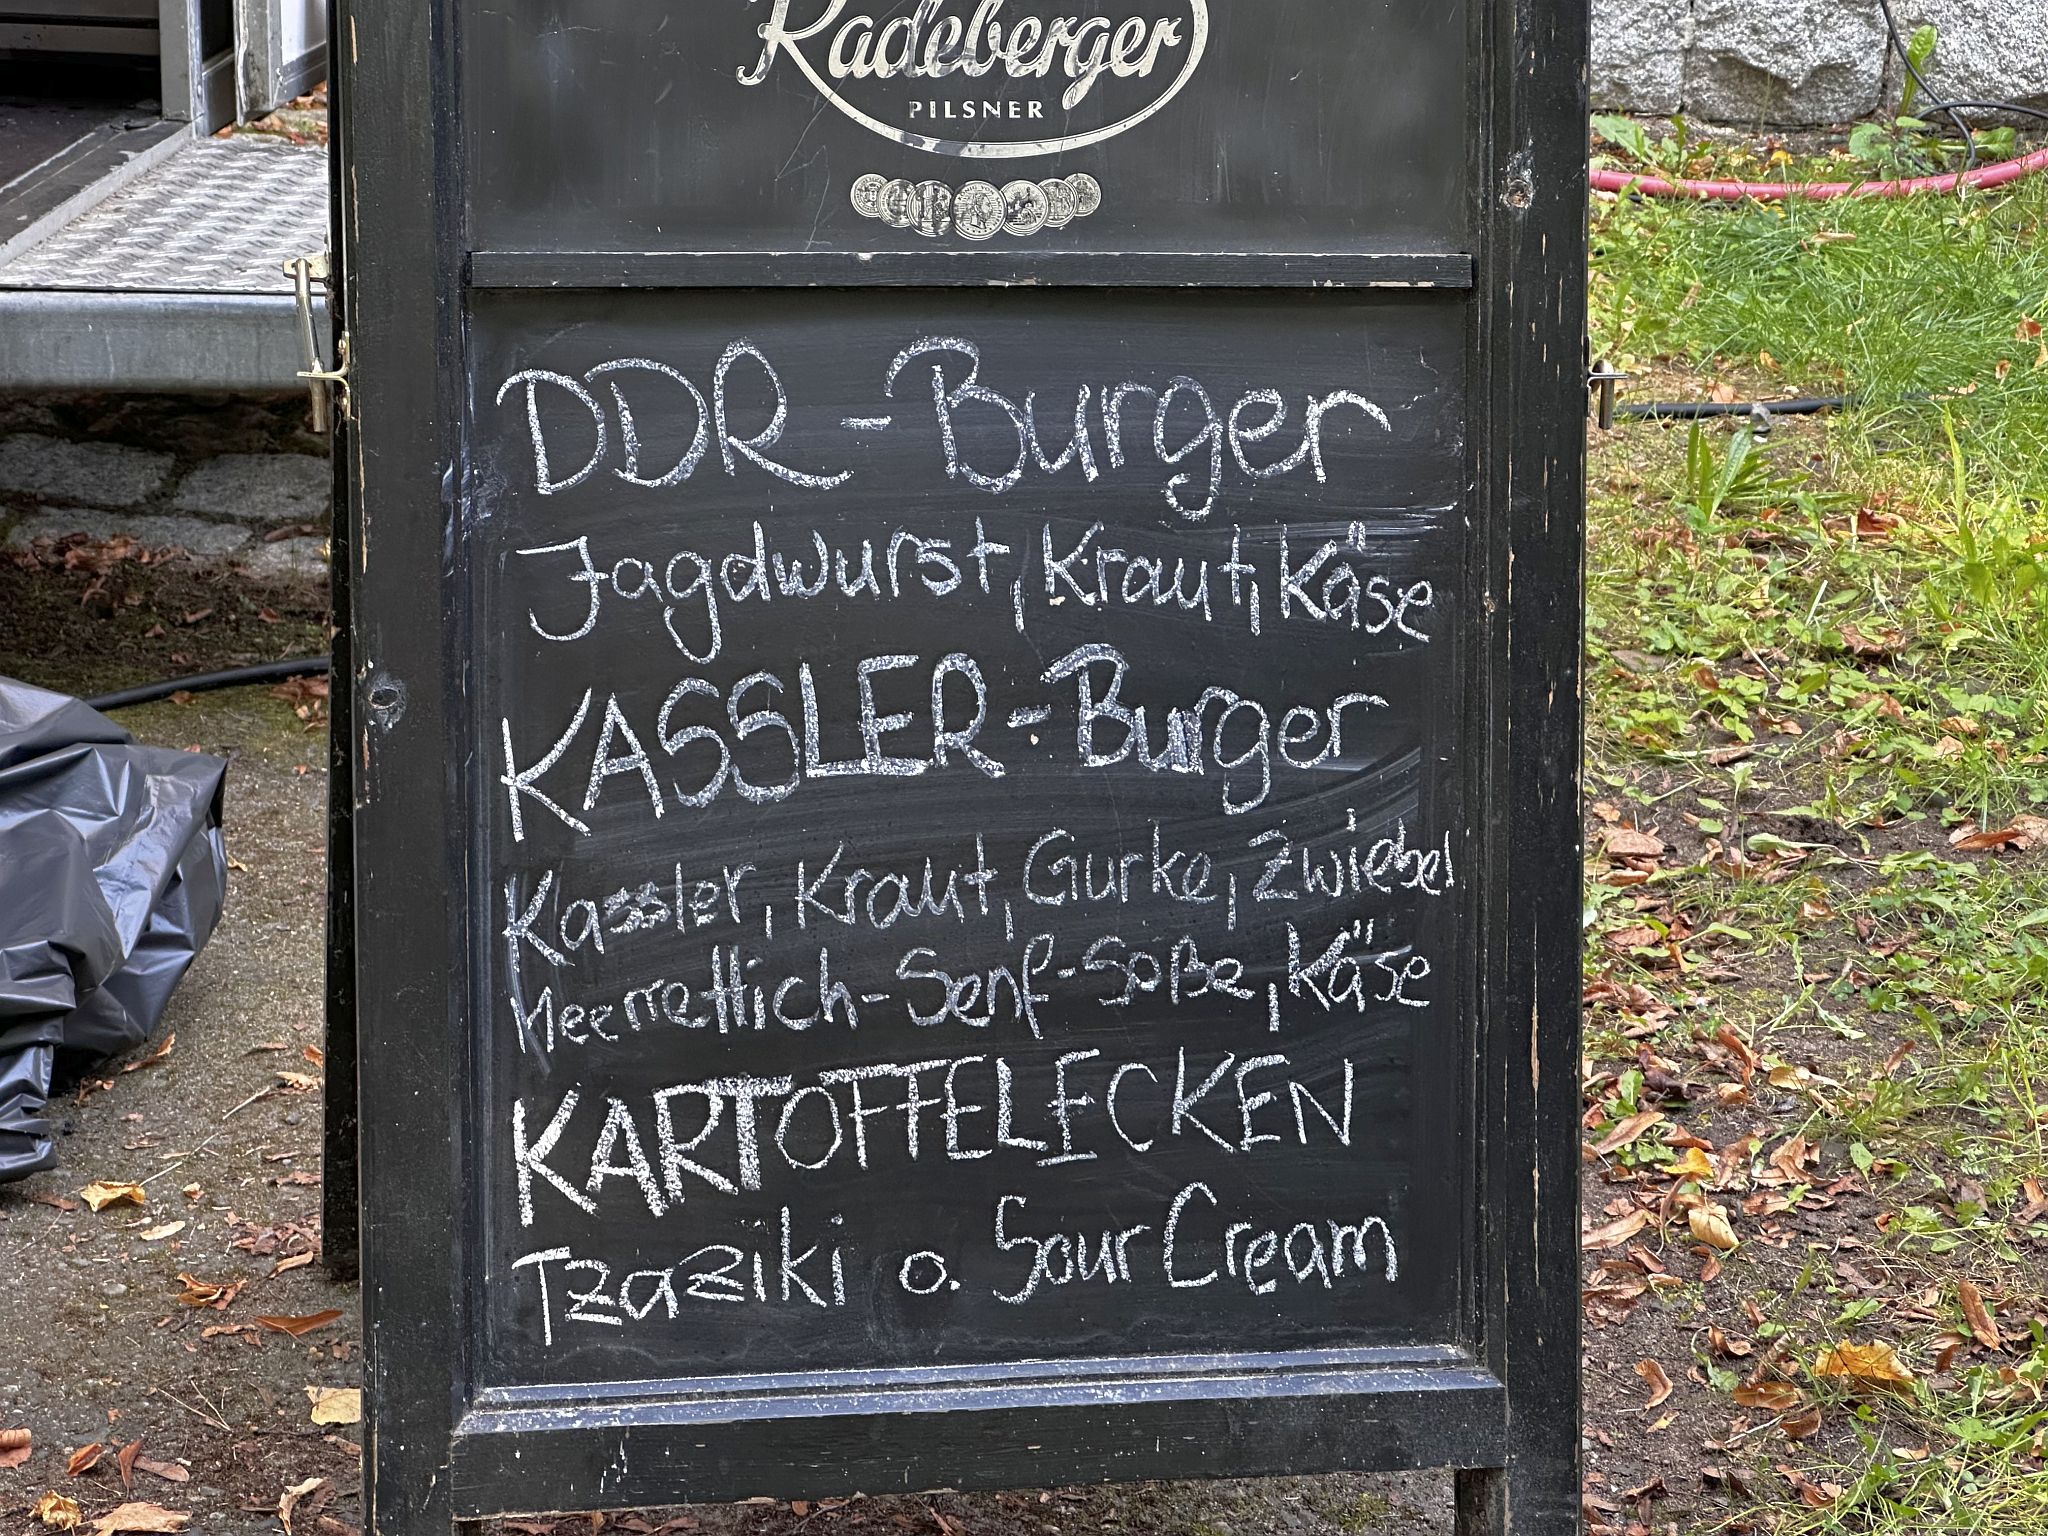 Radeberger
PILSNER
DDR-Burger
Jagdwurst, Kraut, Käse
KASSLER-Burger
Kassler, Kraut, Gurke, Zwiebel
Meerrettich-Senf-Soße, Käse
KARTOFFELECKEN
Tzaziki o. Sour Cream